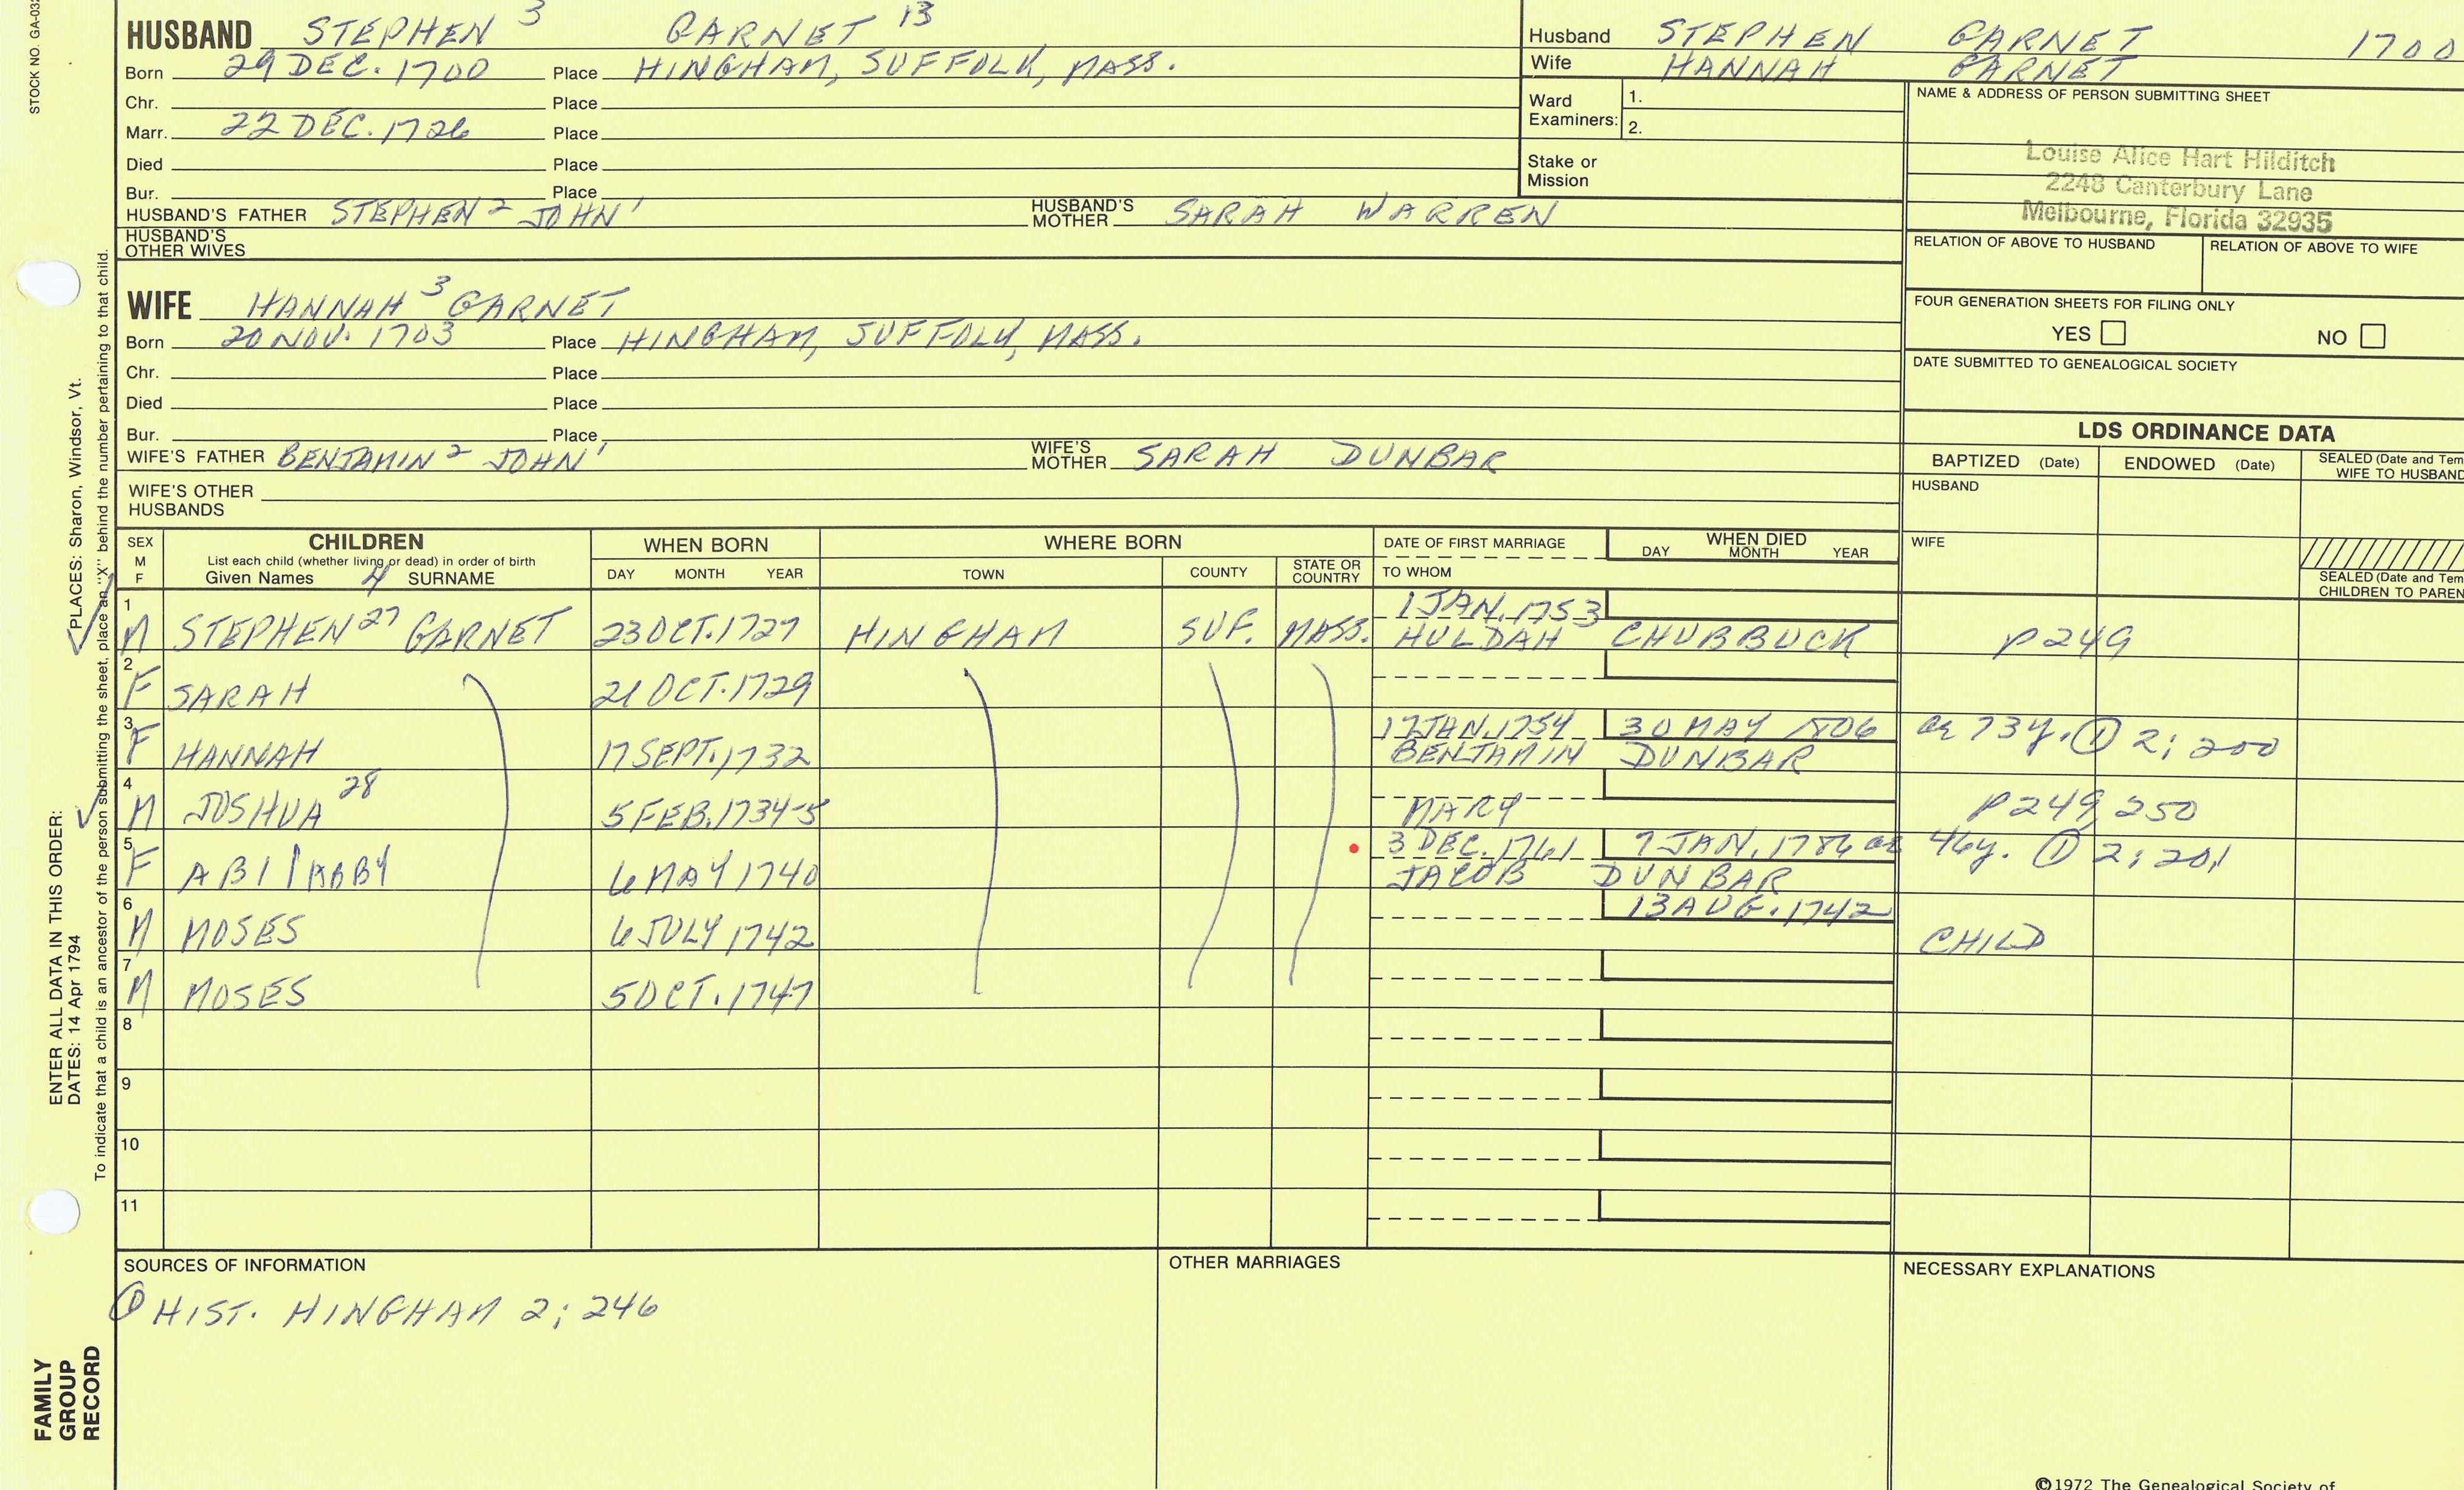 STOCK NO. GA-03
HUSBAND STEPHEN 3 GARNET 13
Born 29 DEC. 1700 Place HINGHAM, SUFFOLK, MASS.
Chr. Place
Marr. 22 DEC. 1726 Place
Died Place
Bur. Place
HUSBAND'S FATHER STEPHEN 2 JOHN 1 HUSBAND'S MOTHER SARAH WARREN
HUSBAND'S OTHER WIVES
Husband STEPHEN GARNET 1700
Wife HANNAH GARNET
Ward Examiners: 1.
2.
Stake or Mission
NAME & ADDRESS OF PERSON SUBMITTING SHEET
Louise Alice Hart Hilditch
2248 Canterbury Lane
Melbourne, Florida 32935
RELATION OF ABOVE TO HUSBAND RELATION OF ABOVE TO WIFE
FOUR GENERATION SHEETS FOR FILING ONLY
YES NO
DATE SUBMITTED TO GENEALOGICAL SOCIETY
WIFE HANNAH 3 GARNET
Born 20 NOV. 1703 Place HINGHAM, SUFFOLK, MASS.
Chr. Place
Died Place
Bur. Place
WIFE'S FATHER BENJAMIN 2 JOHN 1 WIFE'S MOTHER SARAH DUNBAR
WIFE'S OTHER HUSBANDS
LDS ORDINANCE DATA
BAPTIZED (Date) ENDOWED (Date) SEALED (Date and Tem
WIFE TO HUSBAND
HUSBAND
WIFE
SEALED (Date and Tem
CHILDREN TO PAREN
SEX M F
CHILDREN
List each child (whether living or dead) in order of birth
Given Names 4 SURNAME
WHEN BORN
DAY MONTH YEAR
WHERE BORN
TOWN COUNTY STATE OR COUNTRY
DATE OF FIRST MARRIAGE
TO WHOM
WHEN DIED
DAY MONTH YEAR
1 1 JAN. 1753
M STEPHEN 27 GARNET 23 OCT. 1727 HINGHAM SUF. MASS. HULDAH CHUBBUCK P249
2
F SARAH 21 OCT. 1729
3 17 JAN. 1754 30 MAY 1806 ae 73y. ① 2; 200
F HANNAH 17 SEPT. 1732 BENJAMIN DUNBAR
4
M JOSHUA 28 5 FEB. 1734-5 MARY P249, 250
5 3 DEC. 1761 7 JAN. 1786 ae 46y. ① 2; 201
F ABI / ABBY 6 MAY 1740 JACOB DUNBAR
6 13 AUG. 1742
M MOSES 6 JULY 1742 CHILD
7
M MOSES 5 OCT. 1747
8
9
10
11
SOURCES OF INFORMATION
① HIST. HINGHAM 2; 246
OTHER MARRIAGES
NECESSARY EXPLANATIONS
©1972 The Genealogical Society of
ENTER ALL DATA IN THIS ORDER:
DATES: 14 Apr 1794
PLACES: Sharon, Windsor, Vt.
To indicate that a child is an ancestor of the person submitting the sheet, place an "X" behind the number pertaining to that child.
FAMILY
GROUP
RECORD